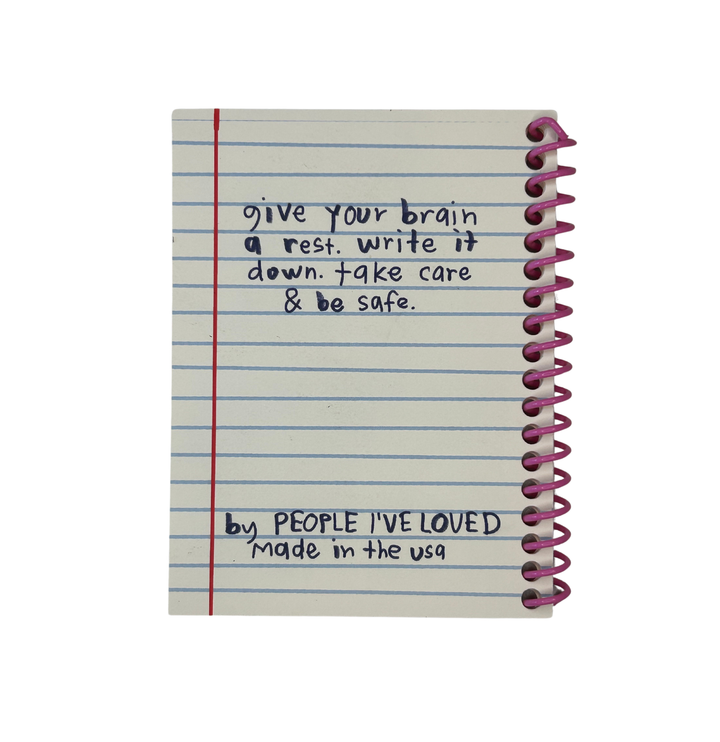 give your brain
a rest. write it
down. take care
& be safe.
by PEOPLE I'VE LOVED
made in the usa